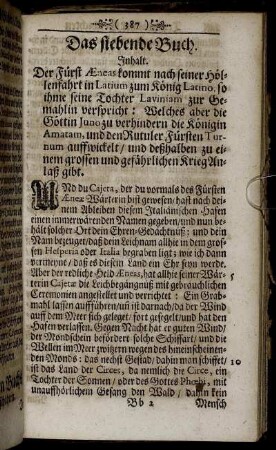 ( 387 )
Das siebende Buch.
Inhalt.
Der Fürst Æneas kommt nach seiner Höl-
lenfahrt in Latium zum König Latino, so
ihme seine Tochter Laviniam zur Ge-
mahlin verspricht: Welches aber die
Göttin Juno zu verhindern die Königin
Amatam, und den Rutuler Fürsten Tur-
num auffwickelt/ und deßhalben zu ei-
nem grossen und gefährlichen Krieg An-
laß gibt.
UNd du Cajeta, der du vormals des Fürsten
Æneæ Wärterin bist gewesen/ hast nach dei-
nem Ableiben diesem Italiänischen Hafen
einen immerwärenden Namen gegeben/ und nun be-
hält solcher Ort dein Ehren-Gedächtnuß: und dein
Nam bezeuget/ daß dein Leichnam allhie in dem gros-
sen Hesperia oder Italia begraben ligt; wie ich dann
vermeyne/ daß es diesem Land ein Ehr seyn werde.
Aber der redliche Held Æneas, hat allhie seiner Wär- 5
terin Cajetæ die Leichbegängnuß mit gebräuchlichen
Ceremonien angestellet und verrichtet: Ein Grab-
mahl lassen aufführen/ und ist darnach/ da der Wind
auff dem Meer sich geleget/ fort gesegelt/ und hat den
Hafen verlassen. Gegen Nacht hat er guten Wind/
der Mondschein befördert solche Schiffart/ und die
Wellen im Meer zwitzern wegen des hineinscheinen-
den Monds: das nechst Gestad/ dahin man schiffet/ 10
ist das Land der Circes, da nemlich die Circe, ein
Tochter der Sonnen/ oder des Gottes Phœbi, mit
unauffhörlichem Gesang den Wald/ dahin kein
Bb 2 Mensch